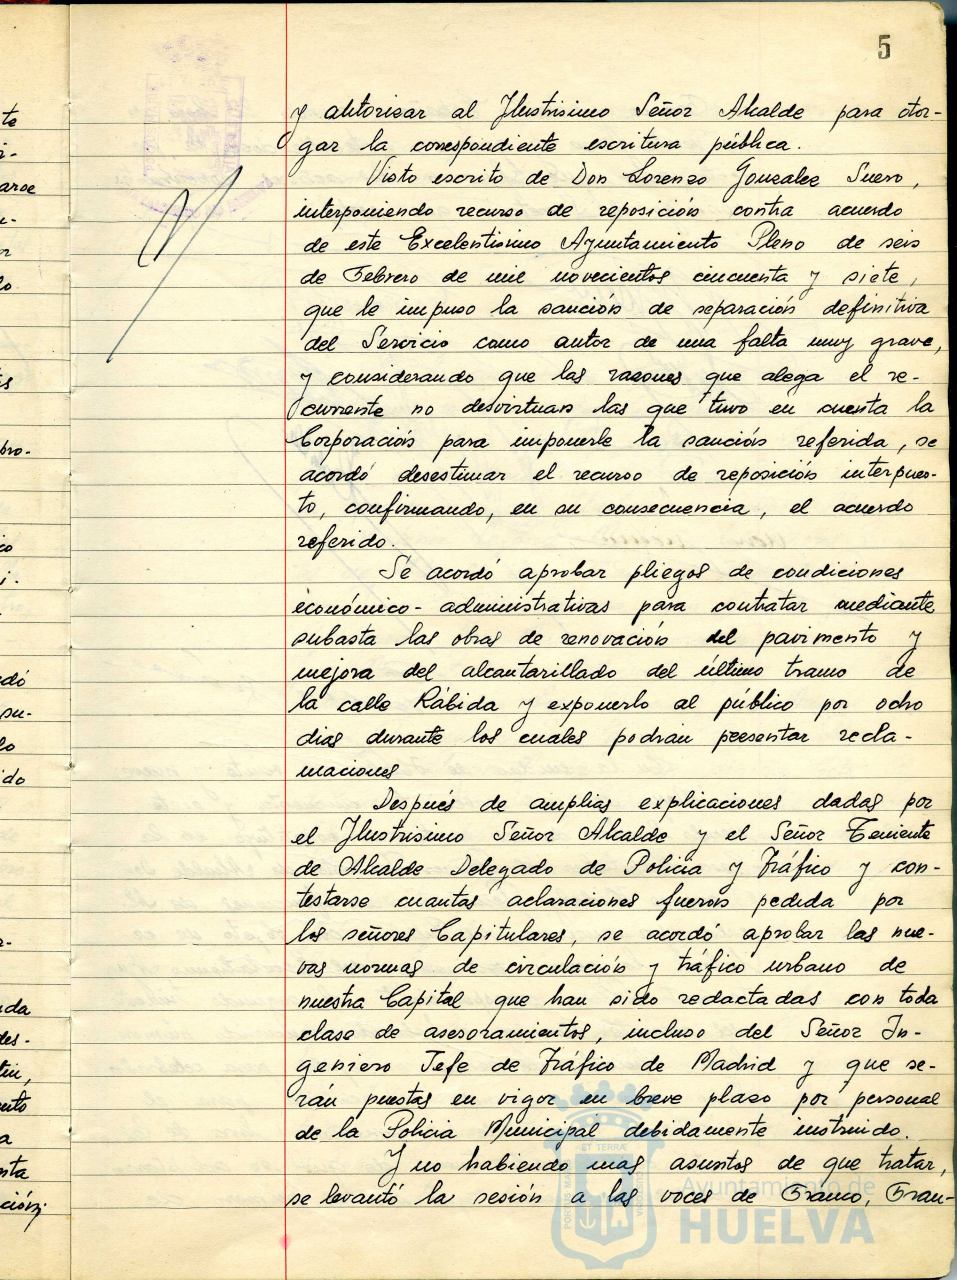 5
y autorisar al Ilustrisimo Señor Alcalde para otor-
gar la correspondiente escritura pública.
Visto escrito de Don Lorenzo Gonzalez Suero,
interponiendo recurso de reposición contra acuerdo
de este Excelentisimo Ayuntamiento Pleno de seis
de Febrero de mil novecientos cincuenta y siete,
que le impuso la sanción de separación definitiva
del Servicio como autor de una falta muy grave,
y considerando que las razones que alega el re-
currente no desvirtuan las que tuvo en cuenta la
Corporación para imponerle la sanción referida, se
acordó desestimar el recurso de reposición interpues-
to, confirmando, en su consecuencia, el acuerdo
referido.
Se acordó aprobar pliegos de condiciones
económico-administrativas para contratar mediante
subasta las obras de renovación del pavimento y
mejora del alcantarillado del último tramo de
la calle Rábida y exponerlo al público por ocho
dias durante los cuales podran presentar recla-
maciones
Después de amplias explicaciones dadas por
el Ilustrisimo Señor Alcalde y el Señor Teniente
de Alcalde Delegado de Policia y Tráfico y con-
testarse cuantas aclaraciones fueron pedida por
los señores Capitulares, se acordó aprobar las nue-
vas normas de circulación y tráfico urbano de
nuestra Capital que han sido redactadas con toda
clase de asesoramientos, incluso del Señor In-
geniero Jefe de Tráfico de Madrid y que se-
rán puestas en vigor en breve plazo por personal
de la Policia Municipal debidamente instruido.
Y no habiendo mas asuntos de que tratar,
se levantó la sesión a las voces de Franco, Fran-
Ayuntamiento de
HUELVA